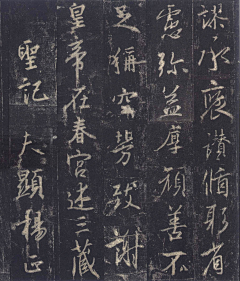 謬承褒讚循躬省
慮彌益厚顏善不
足稱空勞致謝
皇帝在春宮述三藏
聖記 夫顯揚正